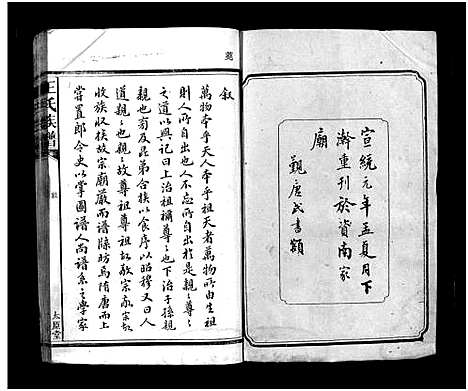 宣統元年孟夏月下
澣重刊於資南家
廟
觀唐氏書額
敘
萬物本乎天人本乎祖天者萬物所由生祖
則人所自出也人不忘所自出於是親之尊
之道以興記曰上治祖禰尊尊也下治子孫親
親也旁及昆弟合族以食序以昭穆又曰人
道親親也親親故尊祖尊祖故敬宗敬宗
收族收族故宗廟嚴而譜牒昉焉隋唐而上
嘗置郎令史以掌圖譜人尚譜系之學家
王氏族譜
敘
太原堂